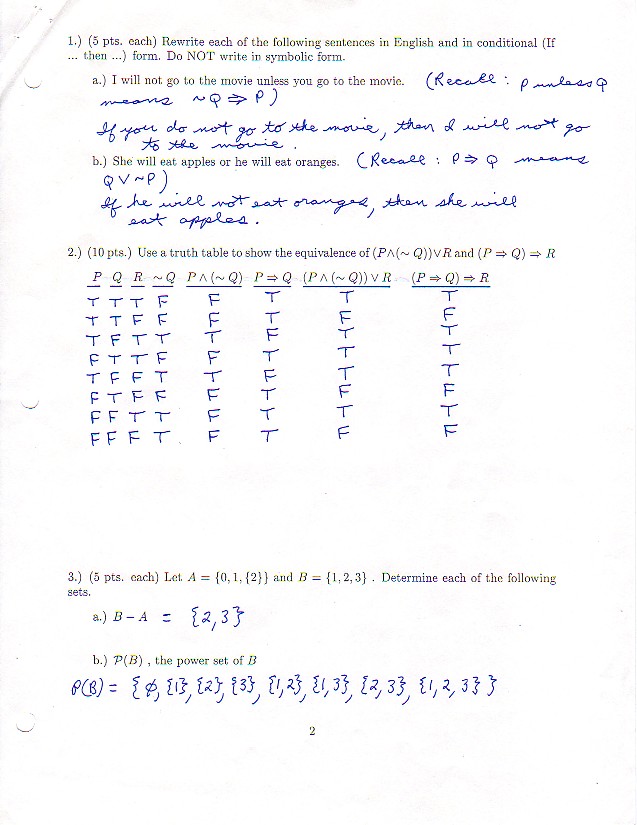 1.) (5 pts. each) Rewrite each of the following sentences in English and in conditional (If
... then ...) form. Do NOT write in symbolic form.
a.) I will not go to the movie unless you go to the movie. (Recall : P unless Q
means ~Q ⇒ P)
If you do not go to the movie, then I will not go
to the movie .
b.) She will eat apples or he will eat oranges. (Recall : P ⇒ Q means
Q ∨ ~P)
If he will not eat oranges, then she will
eat apples .
2.) (10 pts.) Use a truth table to show the equivalence of (P∧(∼ Q))∨R and (P ⇒ Q) ⇒ R
P Q R ∼ Q P ∧ (∼ Q) P ⇒ Q (P ∧ (∼ Q)) ∨ R (P ⇒ Q) ⇒ R
T T T F F T T T
T T F F F T F F
T F T T T F T T
F T T F F T T T
T F F T T F T T
F T F F F T F F
F F T T F T T T
F F F T F T F F
3.) (5 pts. each) Let A = {0, 1, {2}} and B = {1, 2, 3} . Determine each of the following
sets.
a.) B − A = {2,3}
b.) P(B) , the power set of B
P(B) = { ∅, {1}, {2}, {3}, {1,2}, {1,3}, {2,3}, {1,2,3} }
2